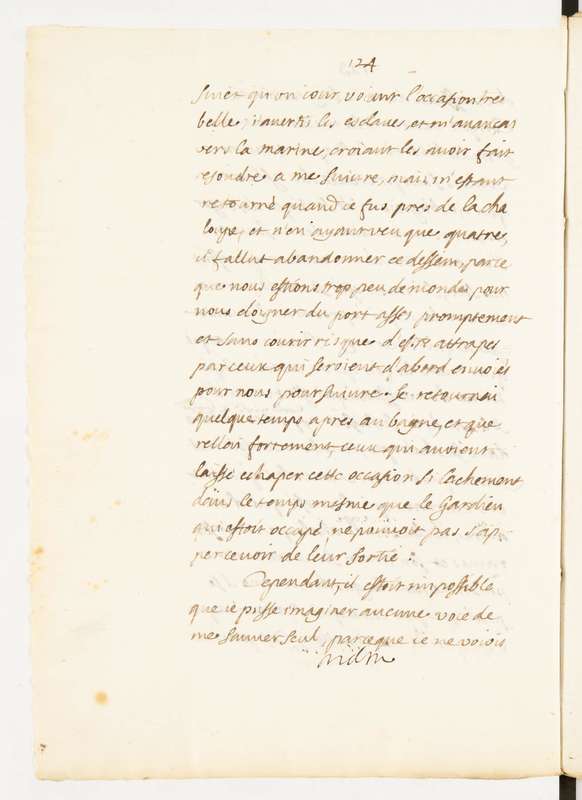 124
suiet qu'on iour, voiant l'occasion tres
belle, i'avertis les esclaves, et m'avançai
vers la marine, croiant les avoir fait
resoudre a me suivre, mais m'estant
retourné quand ie fus pres de la cha
loupe, et n'en ayant veu que quatre,
il fallut abandonner ce dessein, parce
que nous estions trop peu de monde pour
nous eloigner du port assés promptement
et sans courir risque d'estre attrapés
par ceux qui seroient d'abord envoiés
pour nous poursuivre. Je retournai
quelque temps apres au bagne, et que
rellai fortement ceux qui avoient
laissé echaper cette occasion si lachement
dans le temps mesme que le Gardien
qui estoit occupé, ne pouvoit pas s'ap
percevoir de leur sortie.
Cependant, il estoit impossible
que ie pusse imaginer aucune voie de
me sauver seul, parceque ie ne voiois